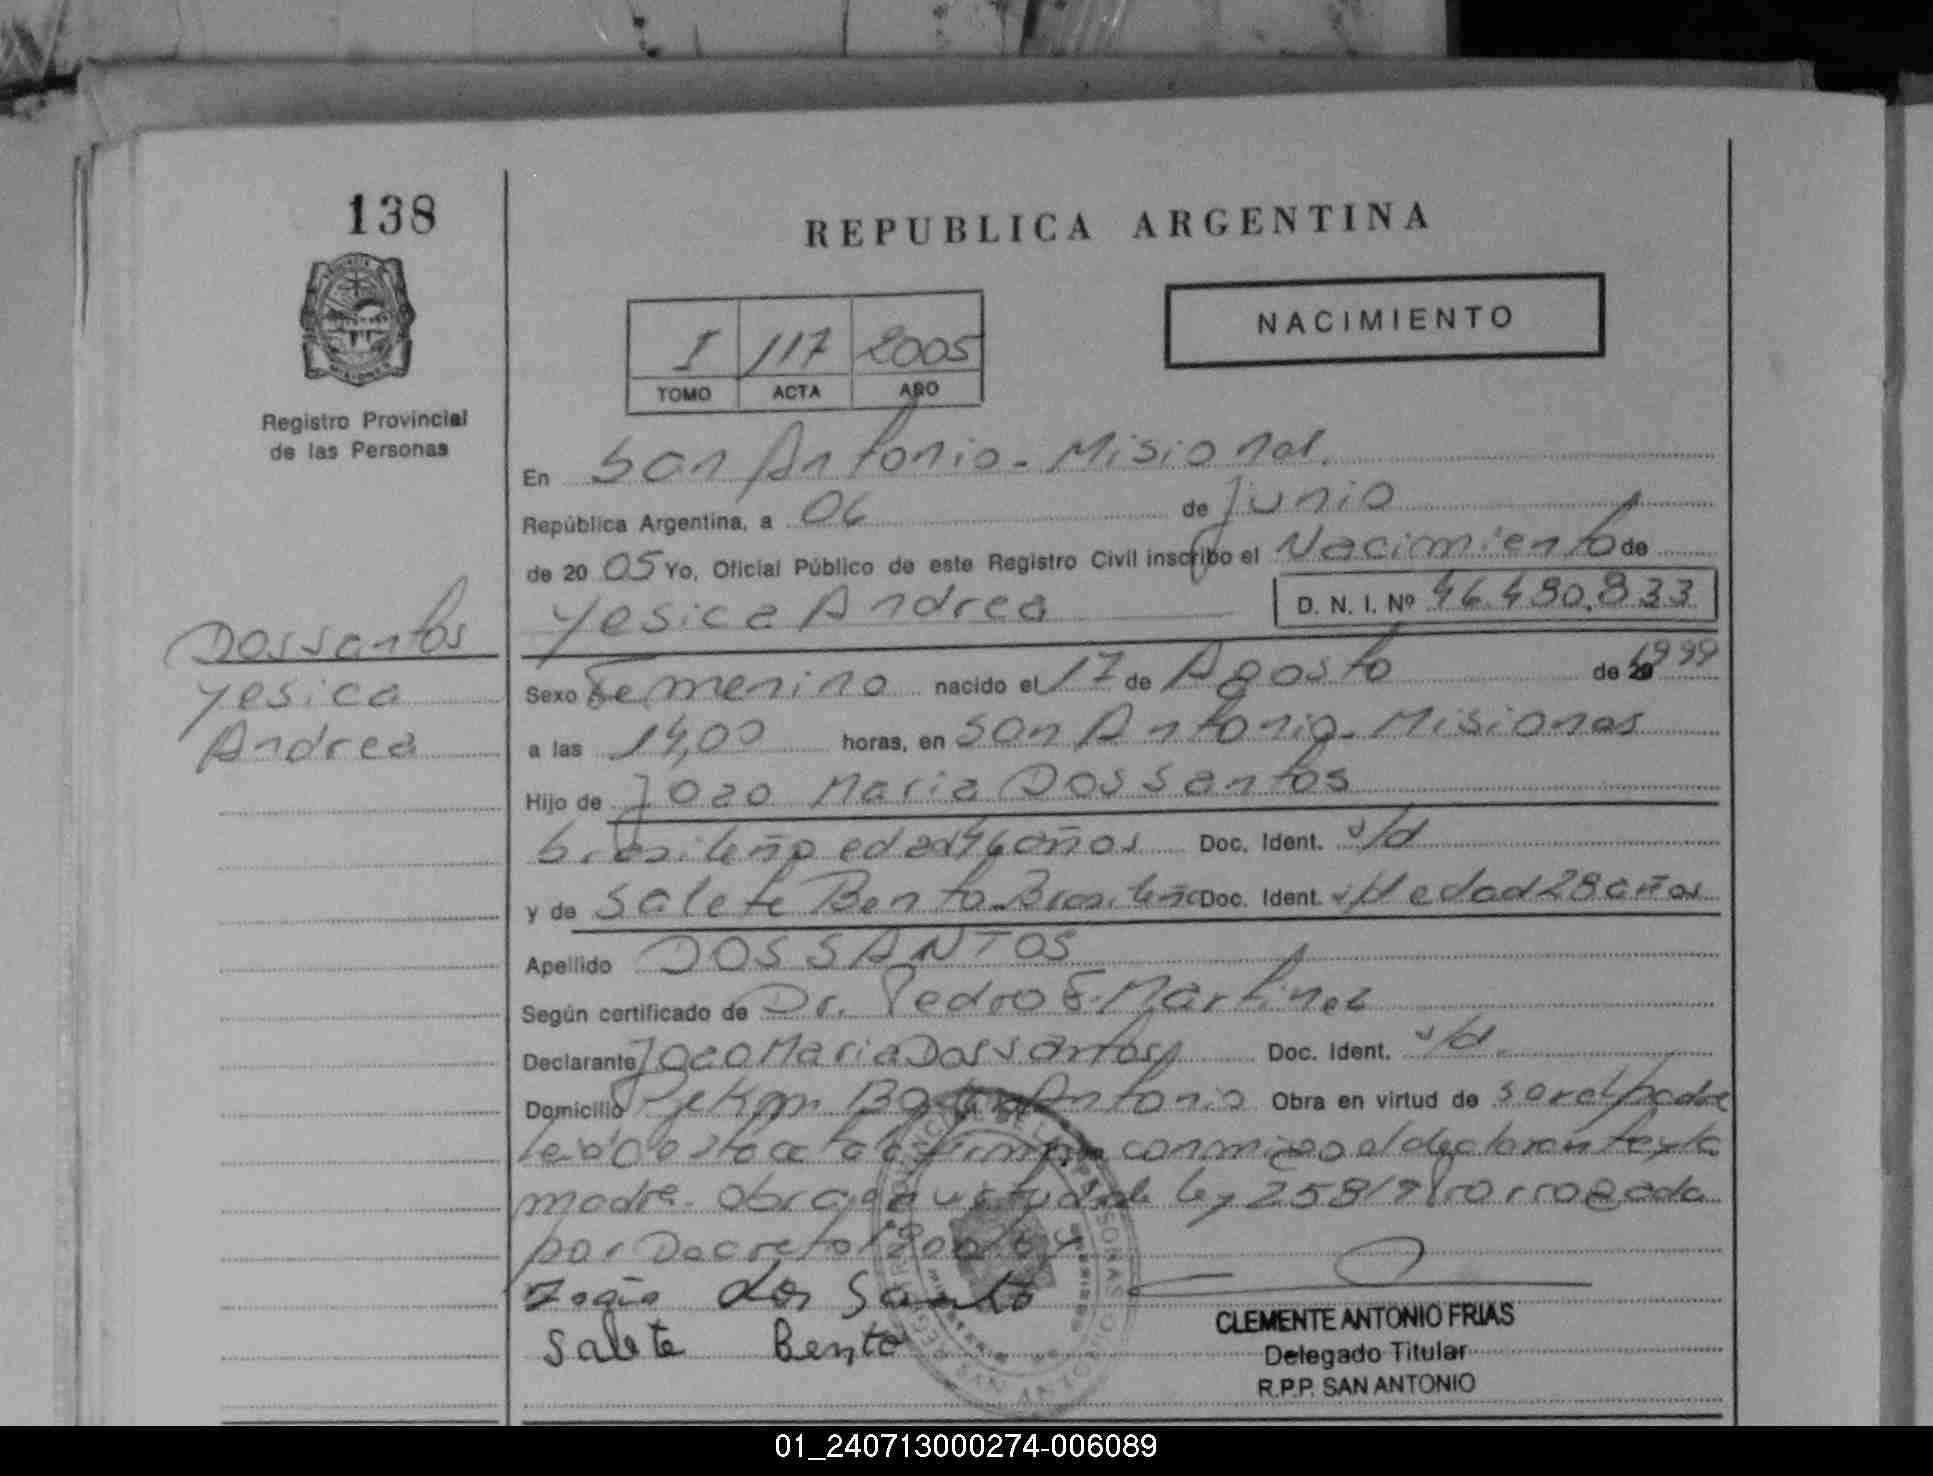 138
REPUBLICA ARGENTINA
NACIMIENTO
I 117 2005
TOMO ACTA AÑO
Registro Provincial
de las Personas
En San Antonio - Misiones.
República Argentina, a 06 de Junio
de 2005 Yo, Oficial Público de este Registro Civil inscribo el Nacimiento de
Yesica Andrea D. N. I. Nº 46.480.833
Dossantos
Yesica
Andrea
Sexo Femenino nacido el 17 de Agosto de 1999
a las 14,00 horas, en San Antonio - Misiones
Hijo de Joao Maria Dossantos
brasileño edad 46 años Doc. Ident. s/d
y de Salete Bento Brasileña Doc. Ident. s/d edad 28 años
Apellido DOSSANTOS
Según certificado de Dr. Pedro E. Martinez
Declarante Joao Maria Dossantos Doc. Ident. s/d.
Domicilio Antonio Obra en virtud de ser el padre
leída el acta firma conmigo el declarante y la
madre. Obra en virtud de ley 25819 Prorrogada
por Decreto
João dos Santo
Salete Bento
CLEMENTE ANTONIO FRIAS
Delegado Titular
R.P.P. SAN ANTONIO
01_240713000274-006089